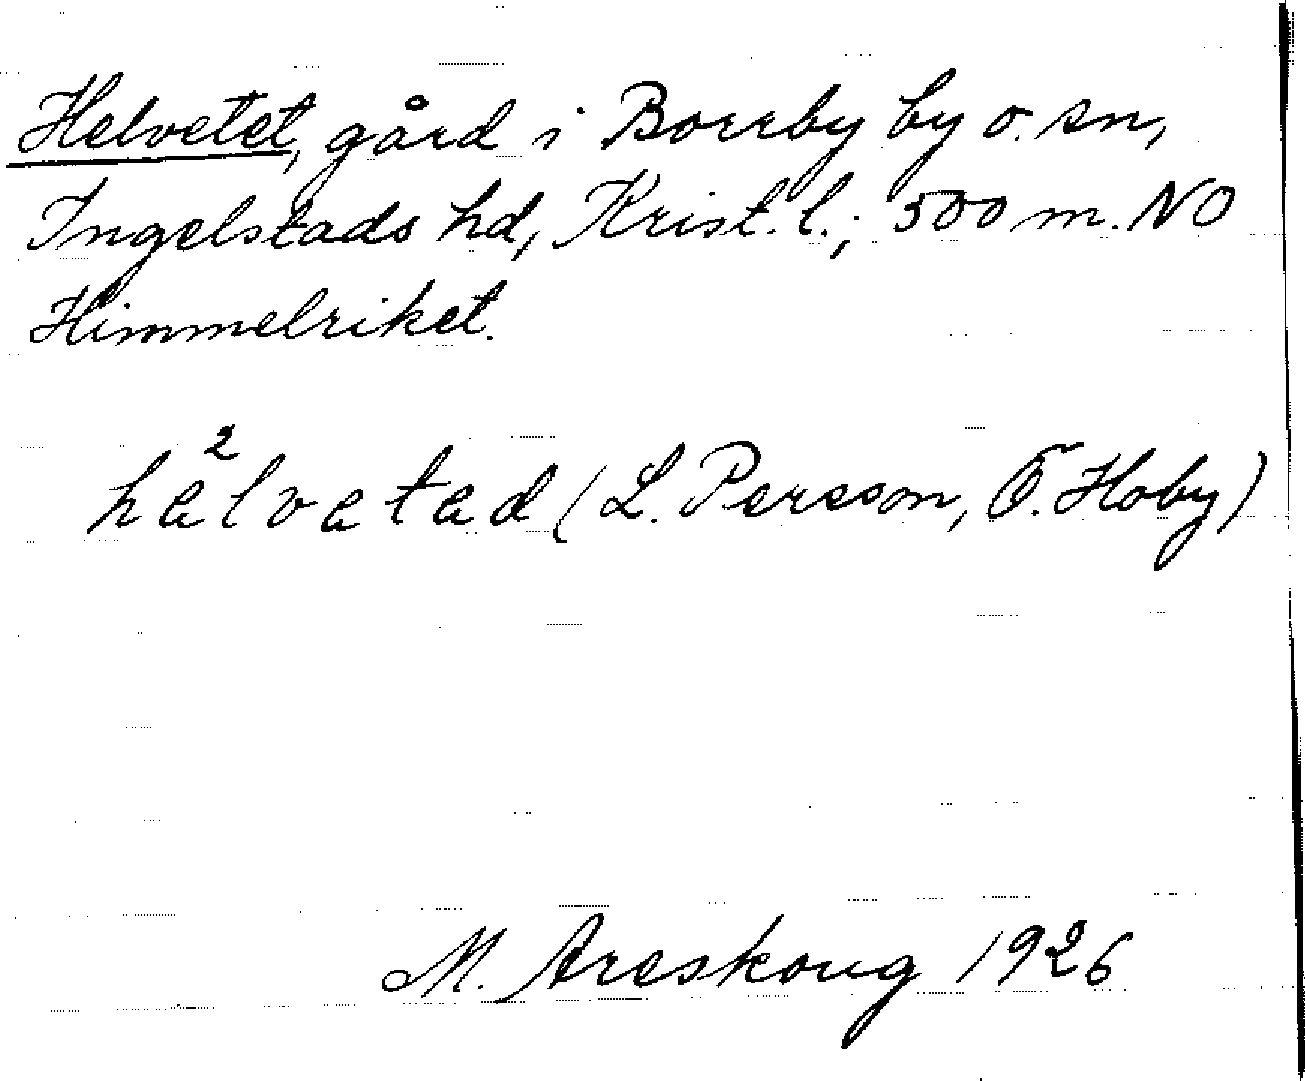 Helvetet, gård i Borrby by o. sn,
Ingelstads hd, Krist. l.; 500 m. NO
Himmelriket.
hälvetad (L. Persson, Ö. Hoby)
M. Areskoug 1926